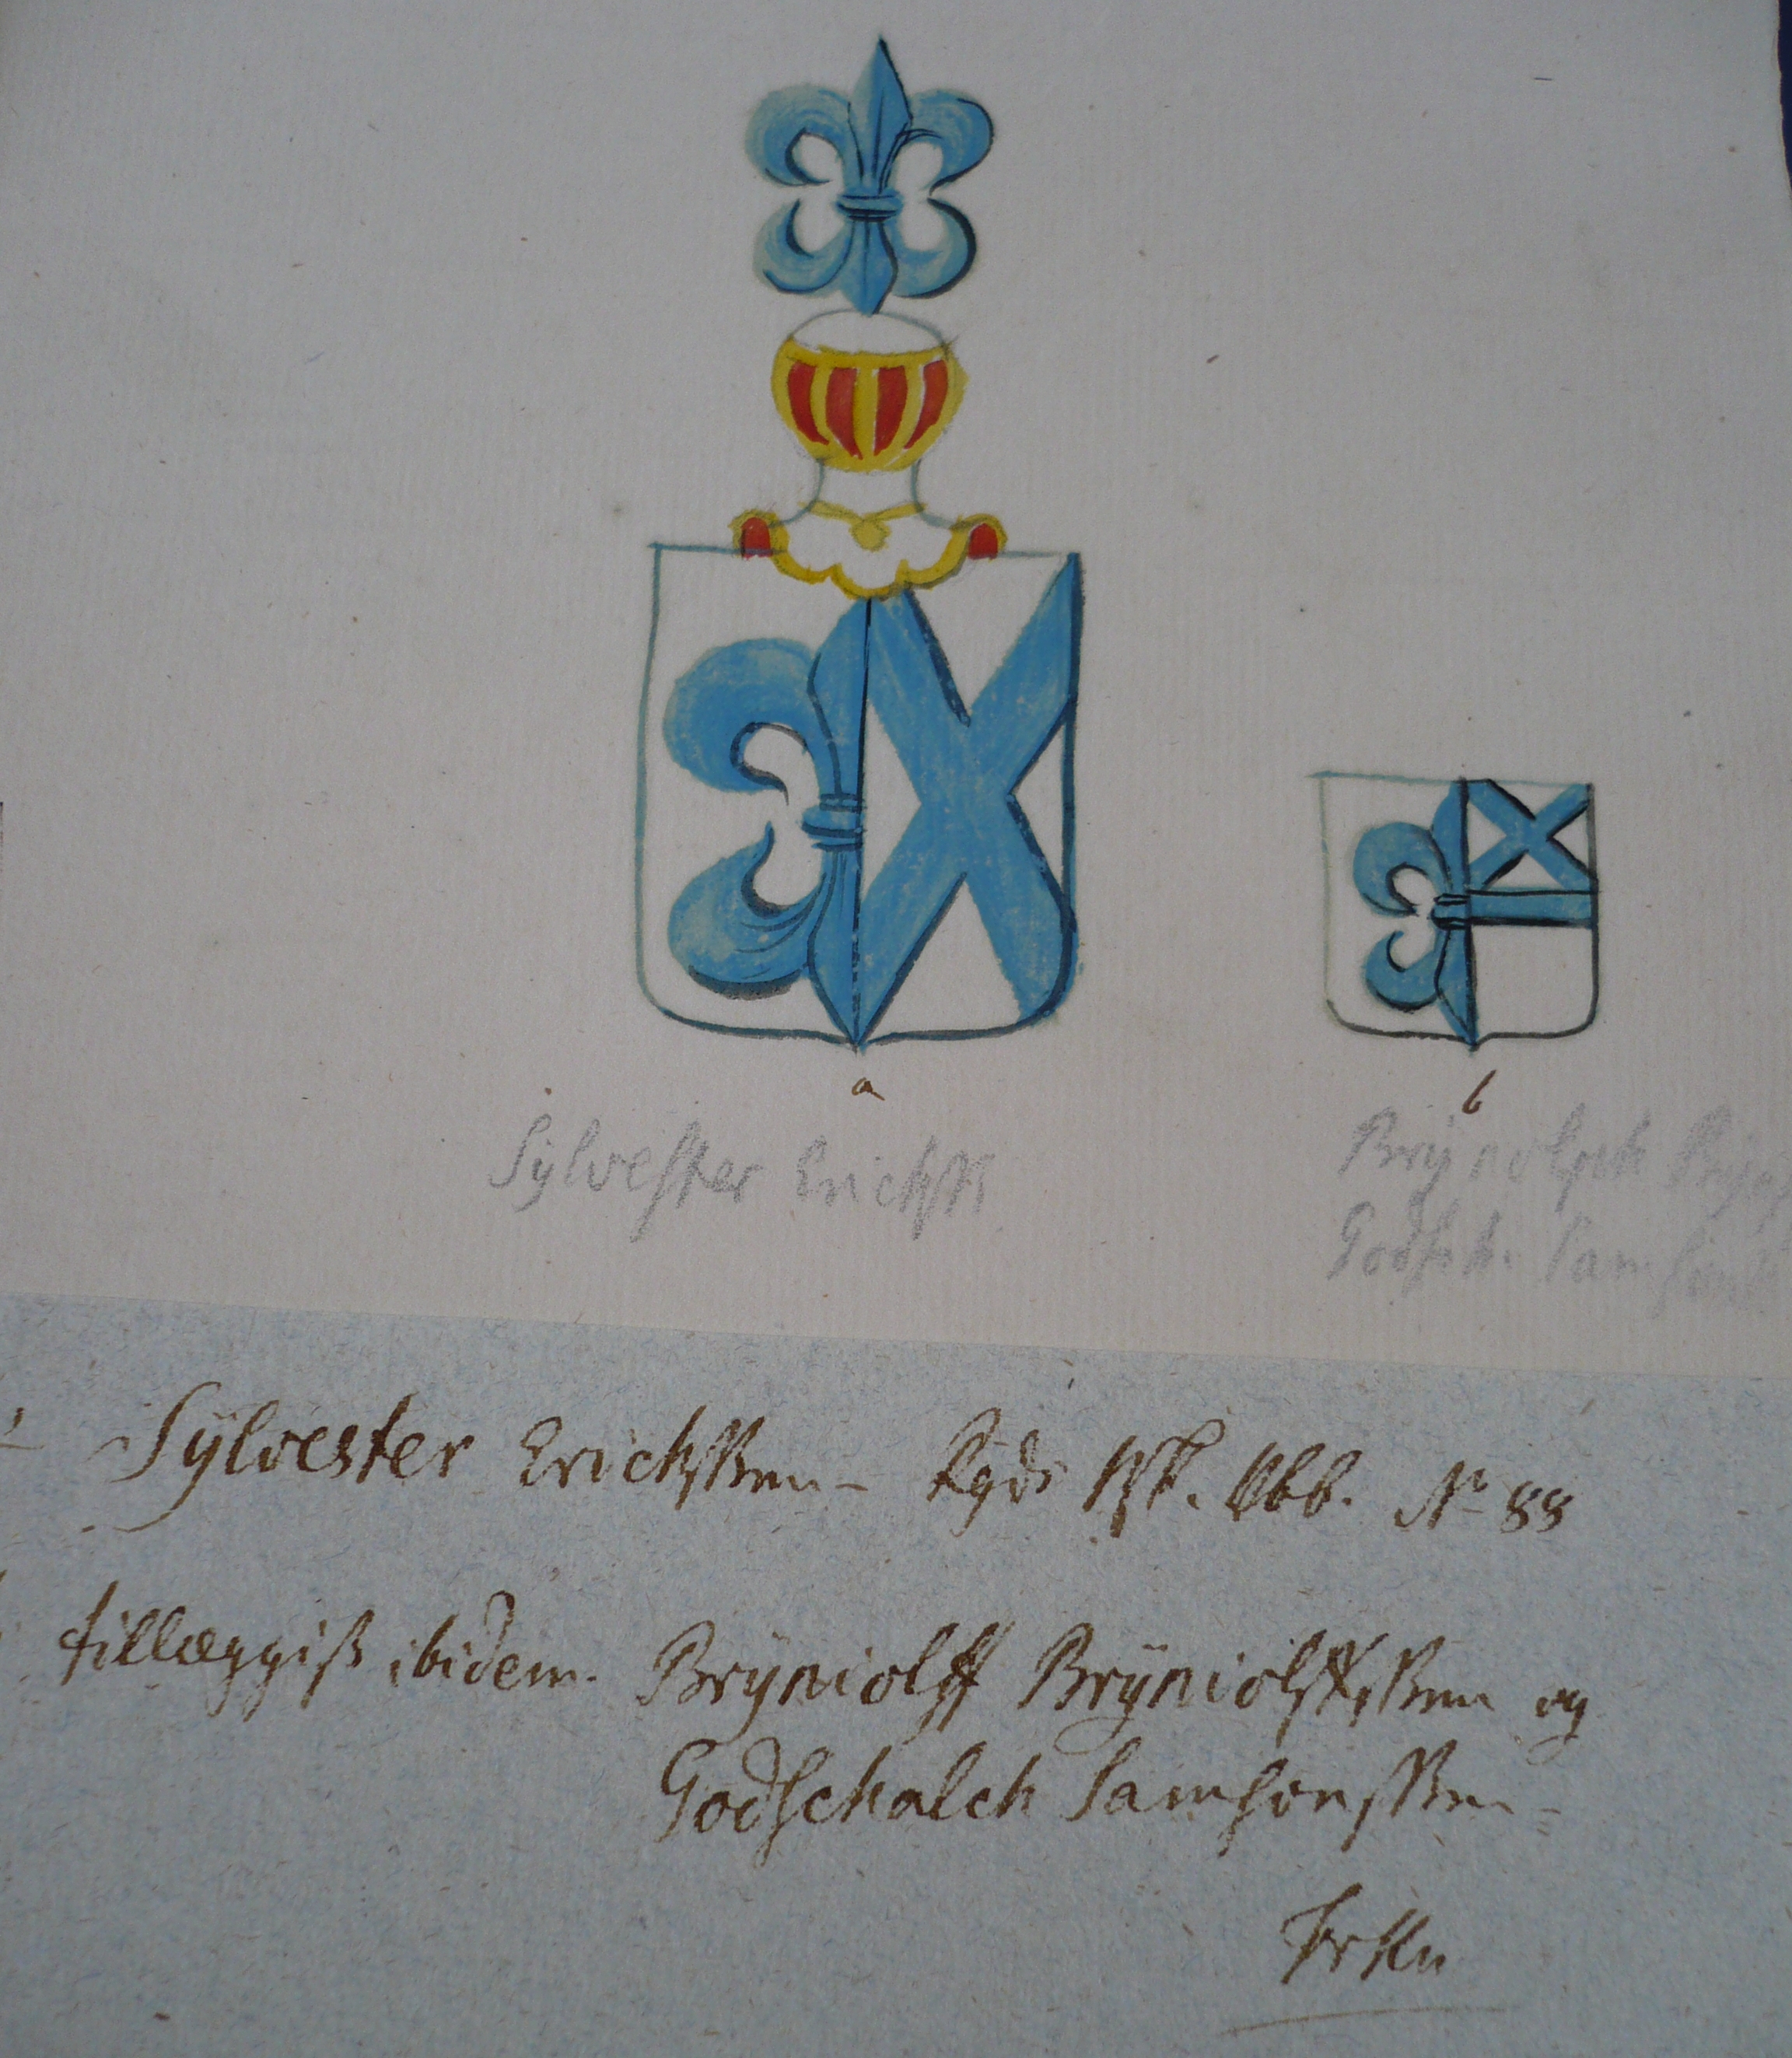 a
b
Sylvester Erichss
Brynolph
Godsch. Sam
Sylvester Erichssen - Rgds Abb. No 88
tillæggiß ibidem. Bryniolff Bryniolffssen og
Godschalch Samsonssen -